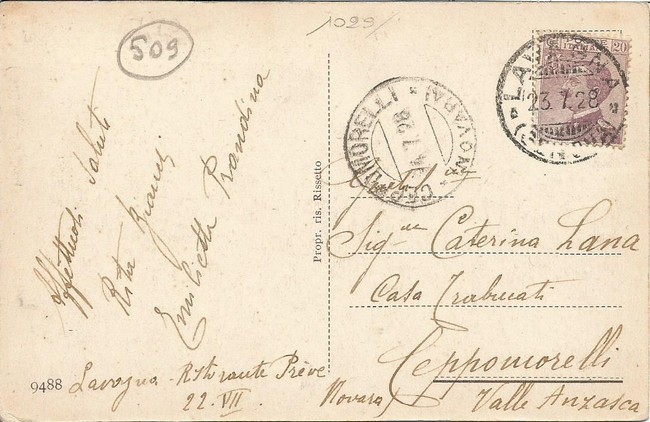 509
1029
20
LAVAGNA
23.7.28
(GENOVA)
CEPPOMORELLI
* NOVARA *
7.28
Affettuosi Saluti
Rita Bianchi
Emilietta Brandina
Lavagna - Ristorante Prève
22. VII
9488
Propr. ris. Rissetto
Sig.ne Caterina Lana
Casa Trabucati
Ceppomorelli
(Novara)
Valle Anzasca